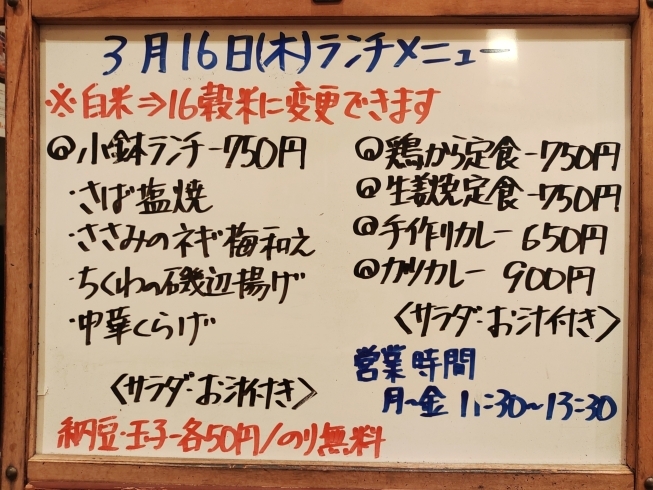 3月16日(木)ランチメニュー
※白米⇒16穀米に変更できます
◎小鉢ランチ-750円
・さば塩焼
・ささみのネギ梅和え
・ちくわの磯辺揚げ
・中華くらげ
〈サラダ・お汁付き〉
納豆・玉子-各50円/のり無料
◎鶏から定食-750円
◎生姜焼定食-750円
◎手作りカレー 650円
◎カツカレー 900円
〈サラダ・お汁付き〉
営業時間
月~金 11:30~13:30